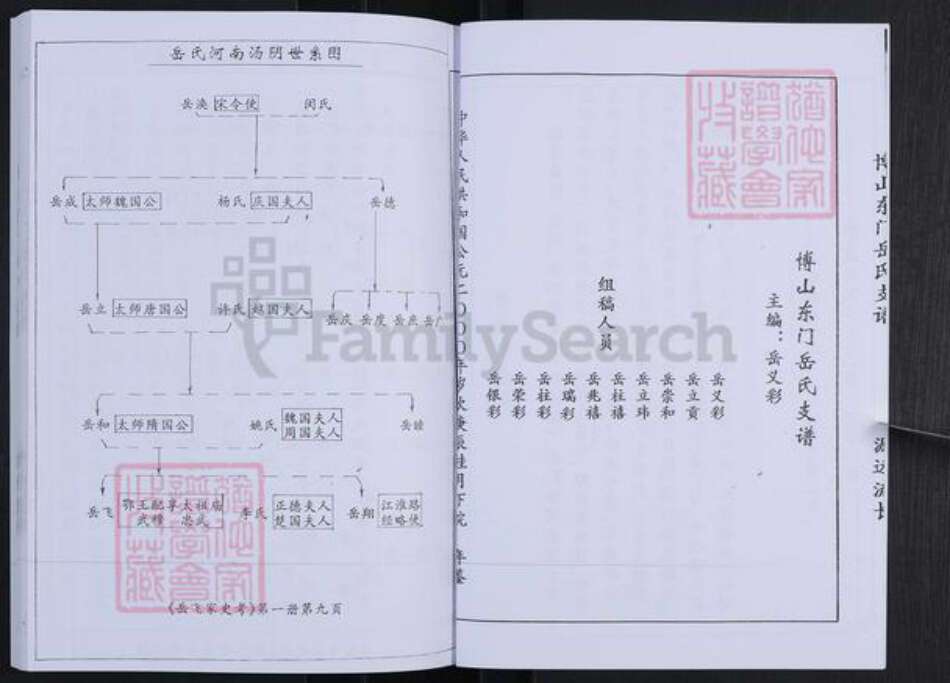 岳氏河南汤阴世系图
岳涣 宋令使 闵氏
岳成 太师魏国公 杨氏 庆国夫人 岳德
岳立 太师唐国公 许氏 越国夫人
岳庆 岳度 岳庶 岳广
岳和 太师隋国公 姚氏 魏国夫人 周国夫人 岳睦
岳飞 鄂王配享太祖庙 武穆 忠武 李氏 正德夫人 楚国夫人 岳翔 江淮路 经略使
《岳飞家史考》第一册第九页
博山东门岳氏支谱
主编：岳义彩
组稿人员
岳义彩
岳立贡
岳崇和
岳立玮
岳柱禧
岳兆禧
岳瑞彩
岳柱彩
岳荣彩
岳银彩
中华人民共和国公元二000年岁次庚辰桂月下浣
博山东门岳氏支谱
源远流长
猶他家譜學會收藏
猶他家譜學會收藏
FamilySearch